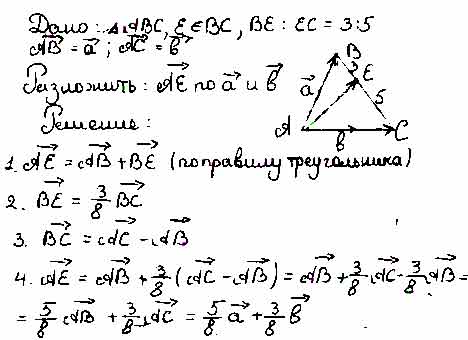 Дано: △ABC, E∈BC, BE : EC = 3:5
$\overrightarrow{AB}$ = $\vec{a}$ ; $\overrightarrow{AC}$ = $\vec{b}$
Разложить: $\overrightarrow{AE}$ по $\vec{a}$ и $\vec{b}$
Решение:
B
3
E
$\vec{a}$
5
A
$\vec{b}$
C
1. $\overrightarrow{AE}$ = $\overrightarrow{AB}$ + $\overrightarrow{BE}$ (по правилу треугольника)
2. $\overrightarrow{BE}$ = $\frac{3}{8}$ $\overrightarrow{BC}$
3. $\overrightarrow{BC}$ = $\overrightarrow{AC}$ - $\overrightarrow{AB}$
4. $\overrightarrow{AE}$ = $\overrightarrow{AB}$ + $\frac{3}{8}$ ($\overrightarrow{AC}$ - $\overrightarrow{AB}$) = $\overrightarrow{AB}$ + $\frac{3}{8}$ $\overrightarrow{AC}$ - $\frac{3}{8}$ $\overrightarrow{AB}$ =
= $\frac{5}{8}$ $\overrightarrow{AB}$ + $\frac{3}{8}$ $\overrightarrow{AC}$ = $\frac{5}{8}$ $\vec{a}$ + $\frac{3}{8}$ $\vec{b}$